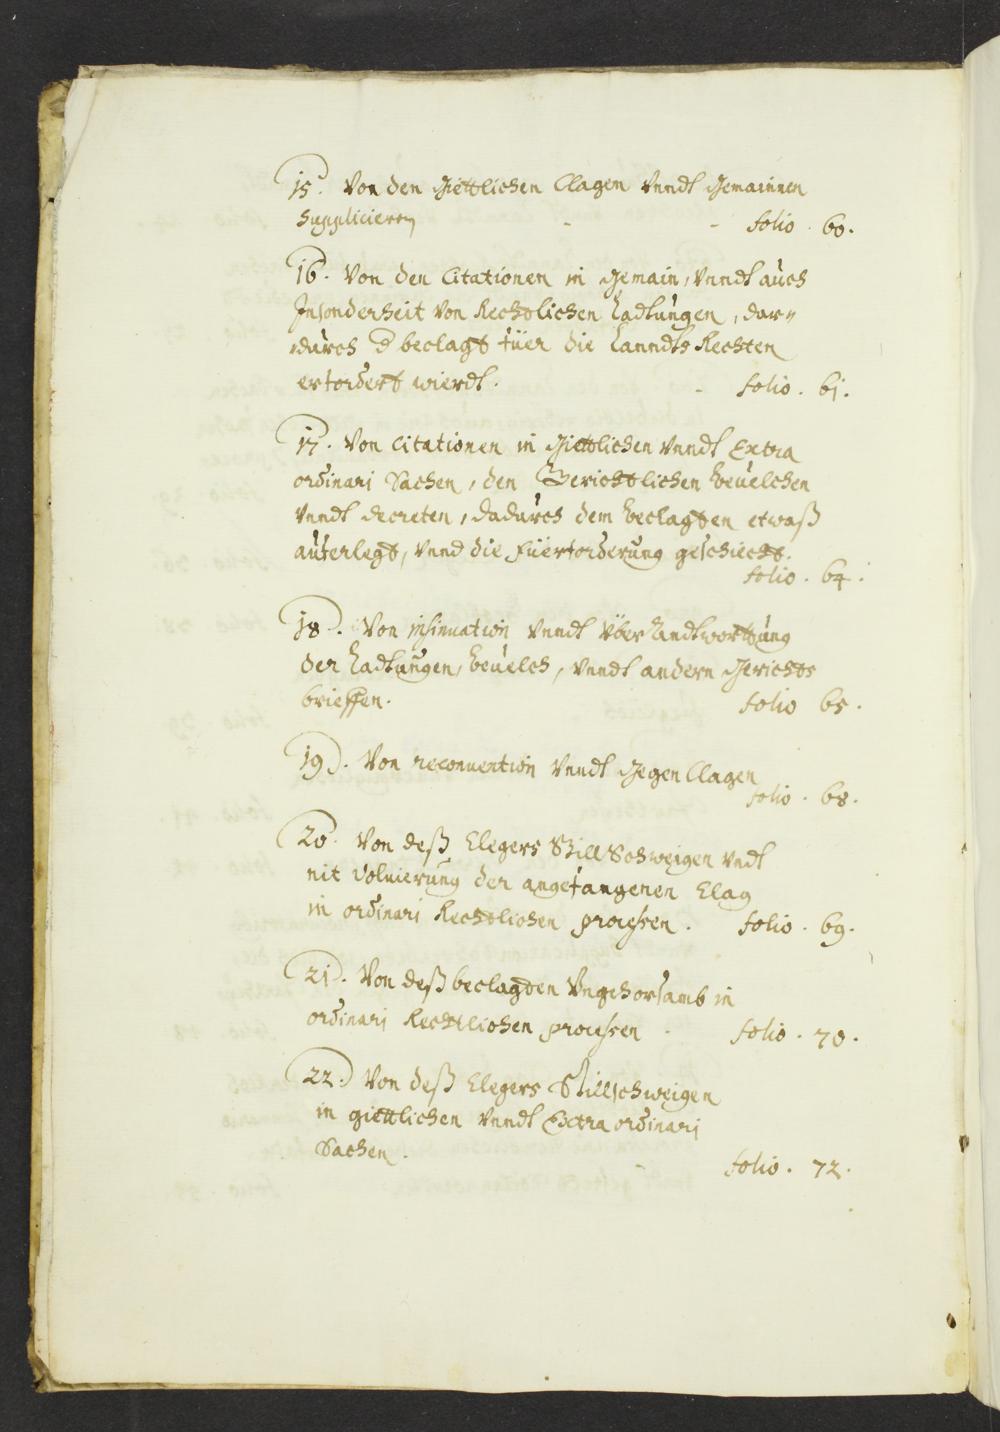 15. Von den Giettlichen Clagen vnndt Gemainnen
Supplicieren - - folio . 60.
16. Von den Citationen in Gemain, vnndt auch
Insonderheit von Rechtlichen Ladtungen, dar„
durch d beclagt füer die Lanndts Rechten
erfordert wierdt. - folio . 61.
17. Von Citationen in Giettlichen vnndt Extra
ordinari Sachen, den Gerichtlichen beuelchen
vnndt decreten, dadurch dem beclagten etwaß
auferlegt, vnnd die Füerforderung geschiecht.
folio . 64.
18. Von insinuation vnndt Überandtworttung
der Ladtungen, beuelch, vnndt andern Gerichts
brieffen. folio 65.
19. Von reconuention vnndt GegenClagen
folio . 68.
20. Von deß Clegers StillSchweigen vndt
nit Volnierung der angefangenen Clag
in ordinari Rechtlichen processen. folio . 69.
21. Von deß beclagten Vngehorsamb in
ordinari Rechtlichen processen . folio . 70.
22. Von deß Clegers Stillschweigen
in giettlichen vnndt Extra ordinari
Sachen. folio . 72.